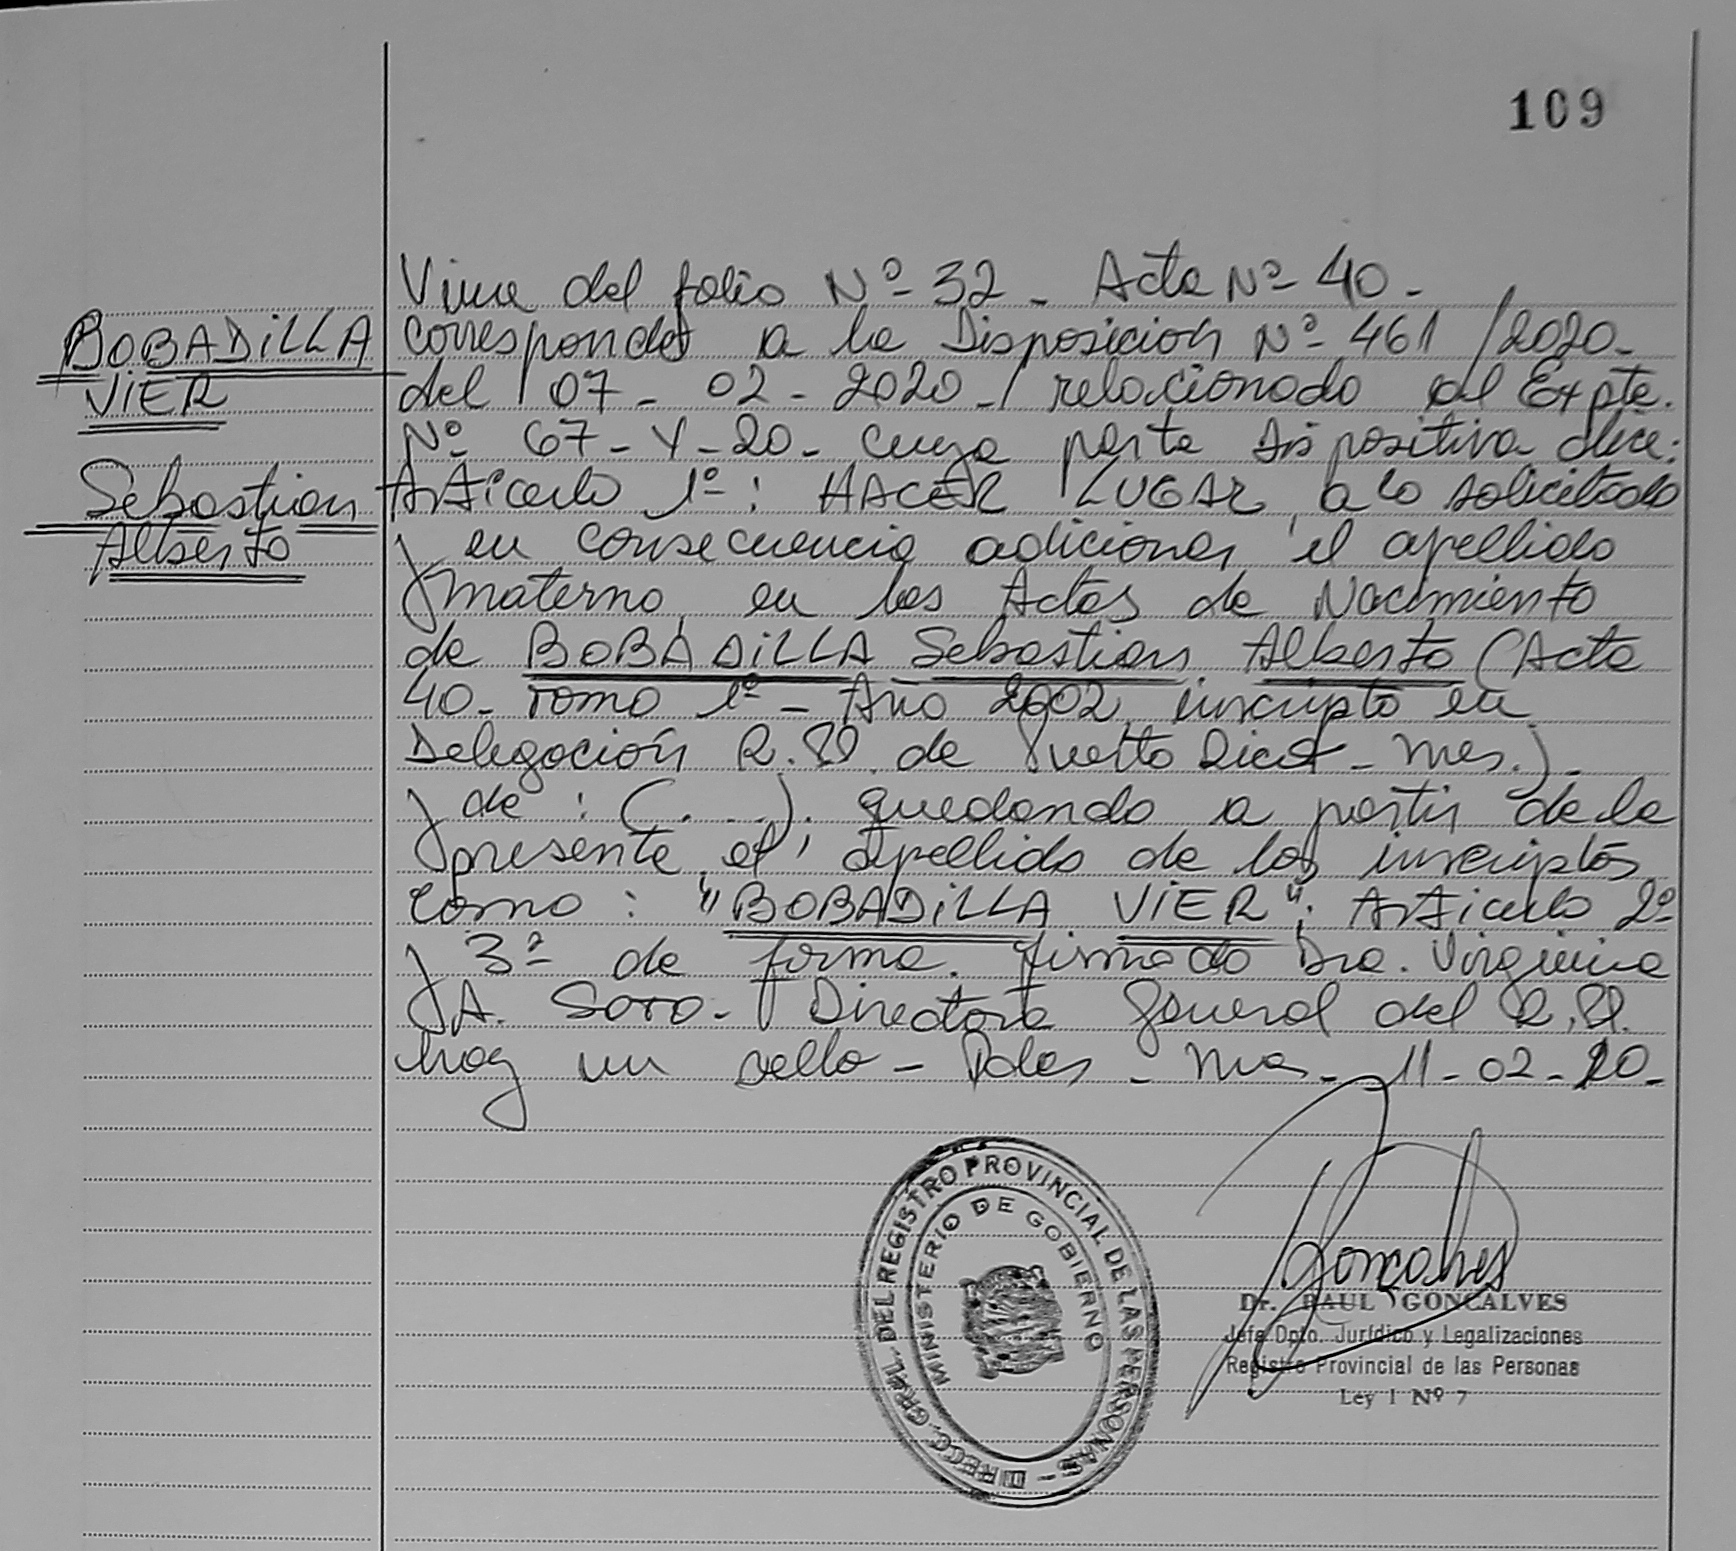 109
BOBADiLLA
ViER
Sebastian
Alberto
Viene del folio Nº 32 - Acta Nº 40 -
corresponde a la Disposición Nº 461 /2020-
del 07 - 02 - 2020 - relacionado al Expte.
Nº 67 - Y - 20 - cuya parte dispositiva dice:
Artículo 1º : HACER LUGAR a lo solicitado
y en consecuencia adicionar el apellido
materno, en las Actas de Nacimiento
de BOBADiLLA Sebastian Alberto (Acta
40 - Tomo 1º - Año 2002, inscripto en
Delegación R.P. de Puerto Rico - Mnes.) -
y de : (. . .) . quedando a partir de la
presente, el apellido de los inscriptos
como : "BOBADiLLA ViER"; Artículo 2º
y 3º de forma. Firmado Dra. Virginia
A. Soro - Directora General del R.P.
hay un sello - Pdas - Mnes - 11 - 02 - 20 -
DIRECC. GRAL. DEL REGISTRO PROVINCIAL DE LAS PERSONAS -
MINISTERIO DE GOBIERNO
Goncalves
Dr. RAUL GONCALVES
Jefe Dpto. Jurídico y Legalizaciones
Registro Provincial de las Personas
Ley I Nº 7